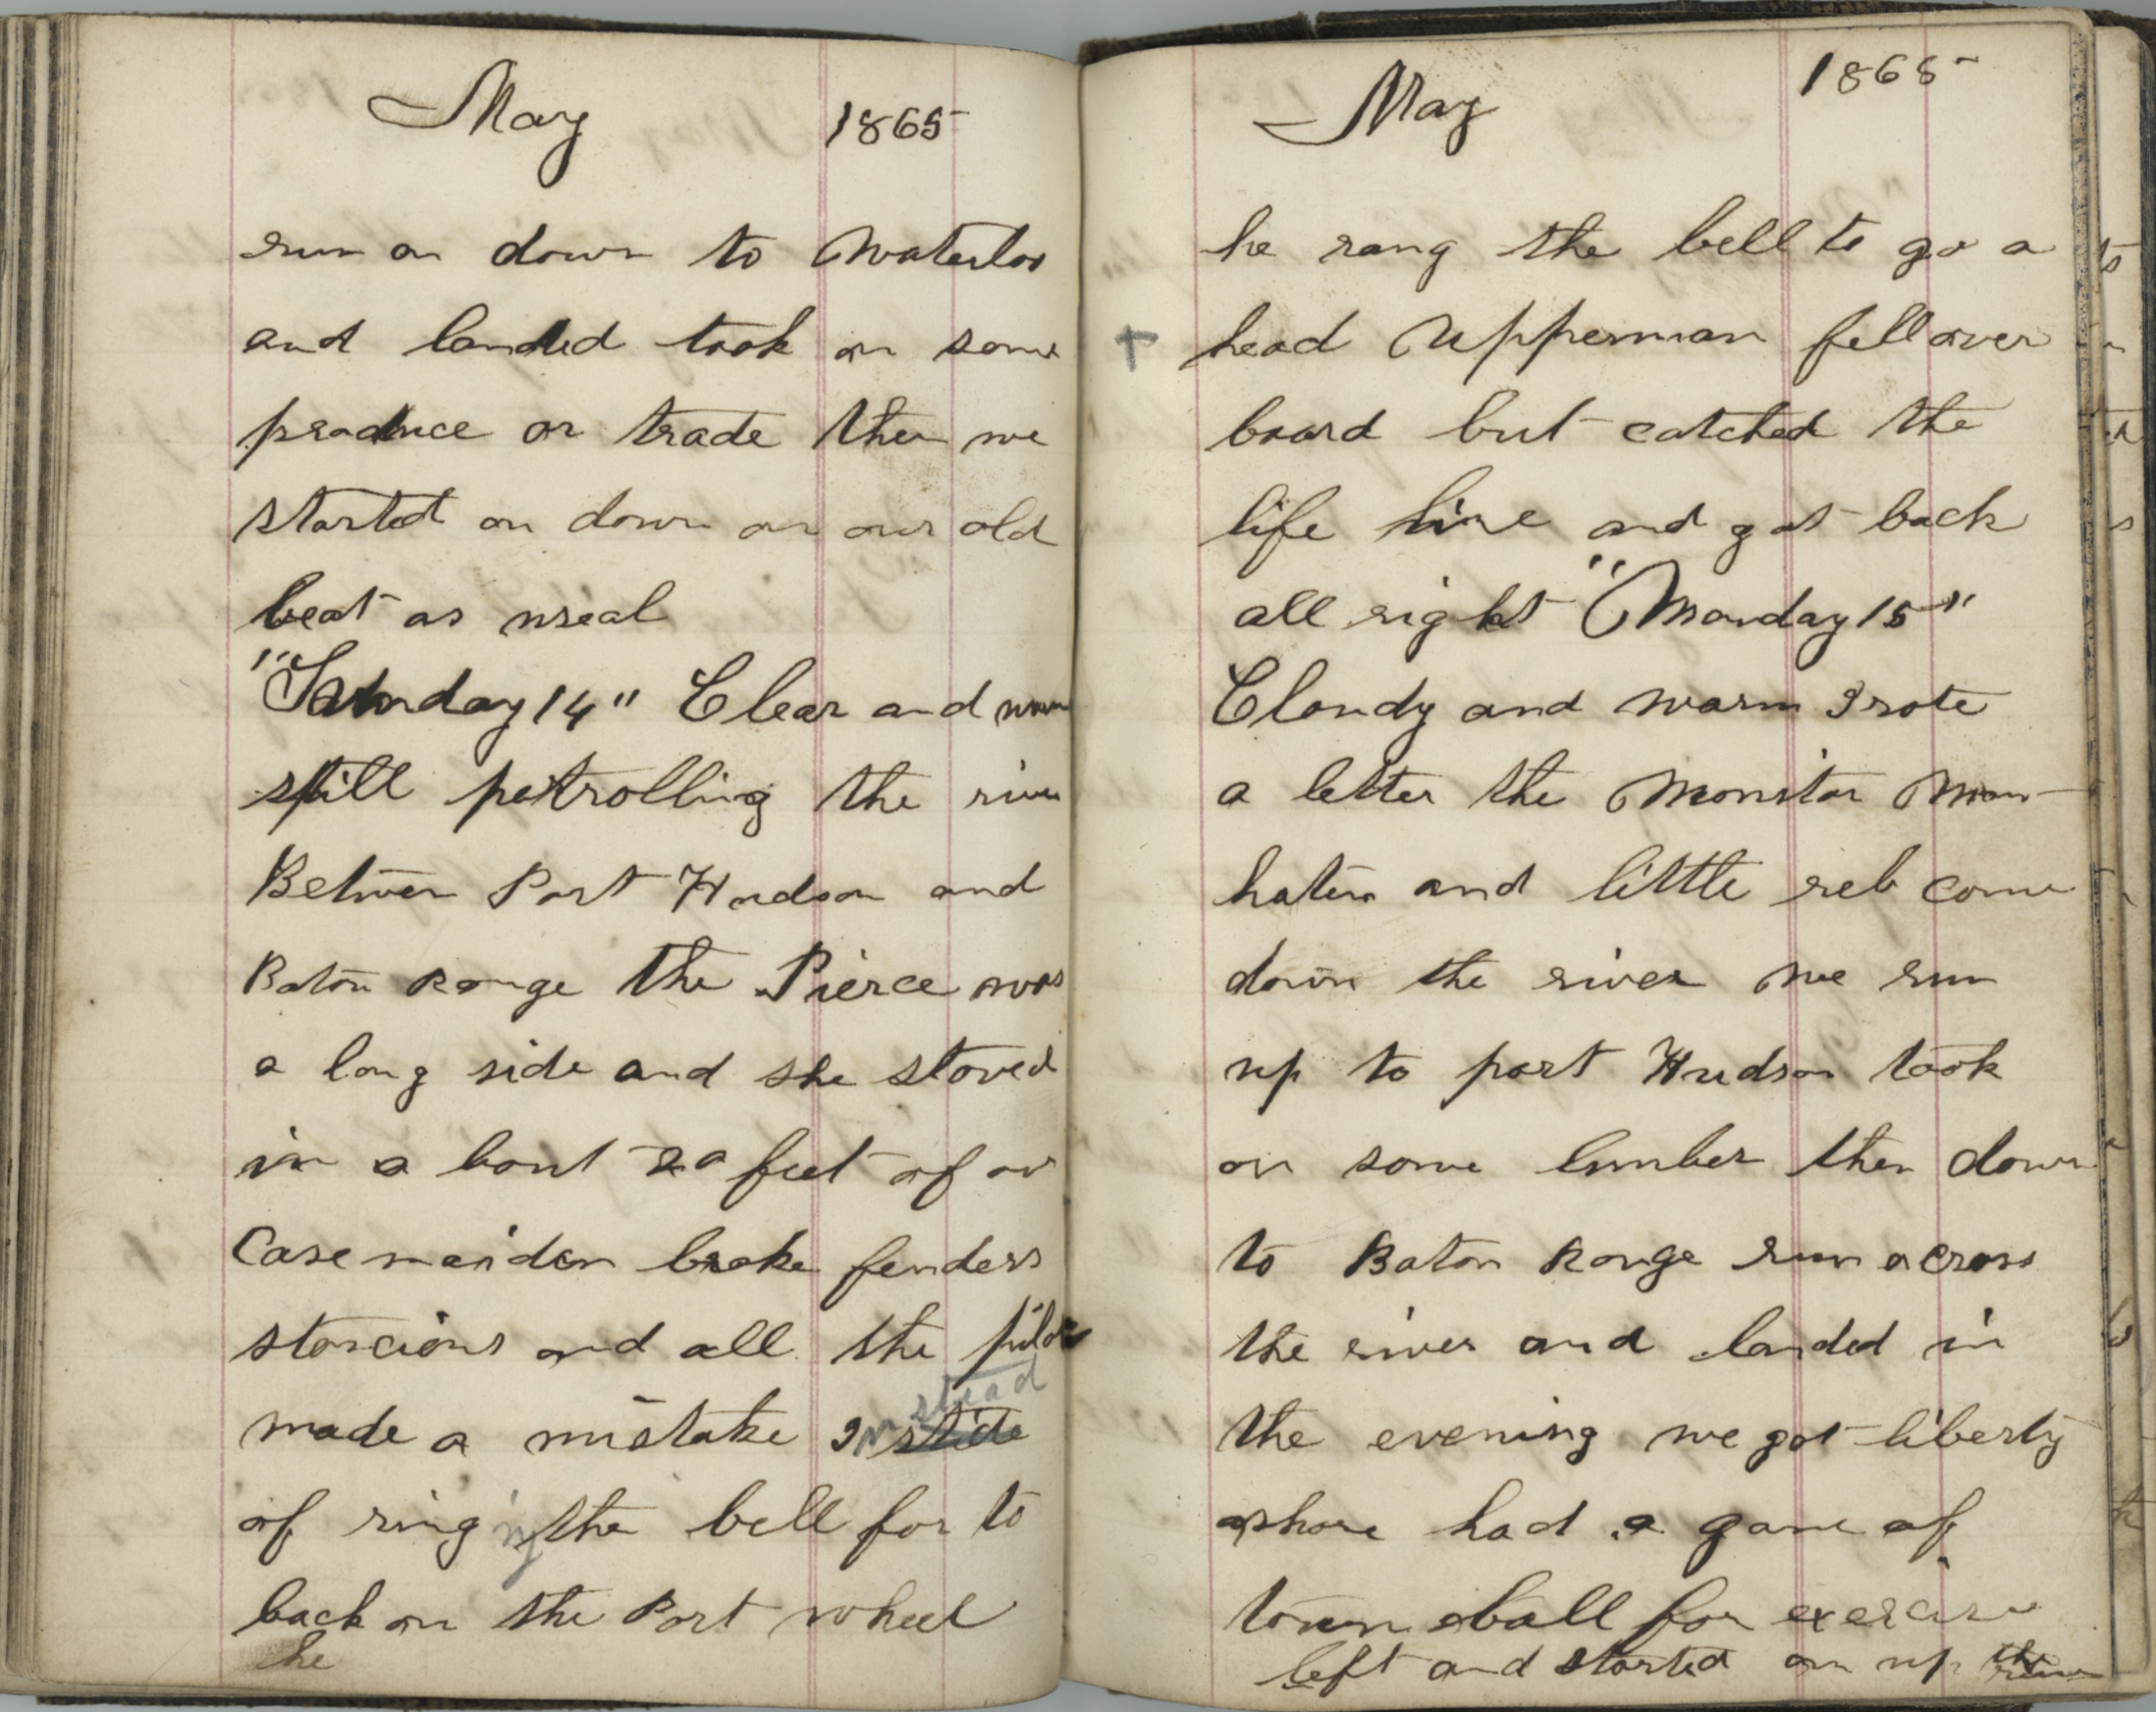 May 1865
run on down to Waterloo
and landed took on some
produce or trade then we
started on down on our old
beat as useal
"Saturday 14" Clear and warm
still patrolling the river
Between Port Hudson and
Baton Rouge the Pierce was
a long side and she stoved
in a bout 20 feet of our
Casemaiden broke fenders
stancions and all the pilot
made a mistake Instead
of ringing the bell for to
back on the Port wheel
he
May 1865
he rang the bell to go a
+ head Upperman fell over
board but catched the
life line and got back
all right "Monday 15"
Cloudy and warm I rote
a letter the Monitor Man-
haten and little reb come
down the river we run
up to port Hudson took
on some lumber then down
to Baton Rouge run across
the river and landed in
the evening we got liberty
ashore had a game of
town ball for exercise
left and started on up the river